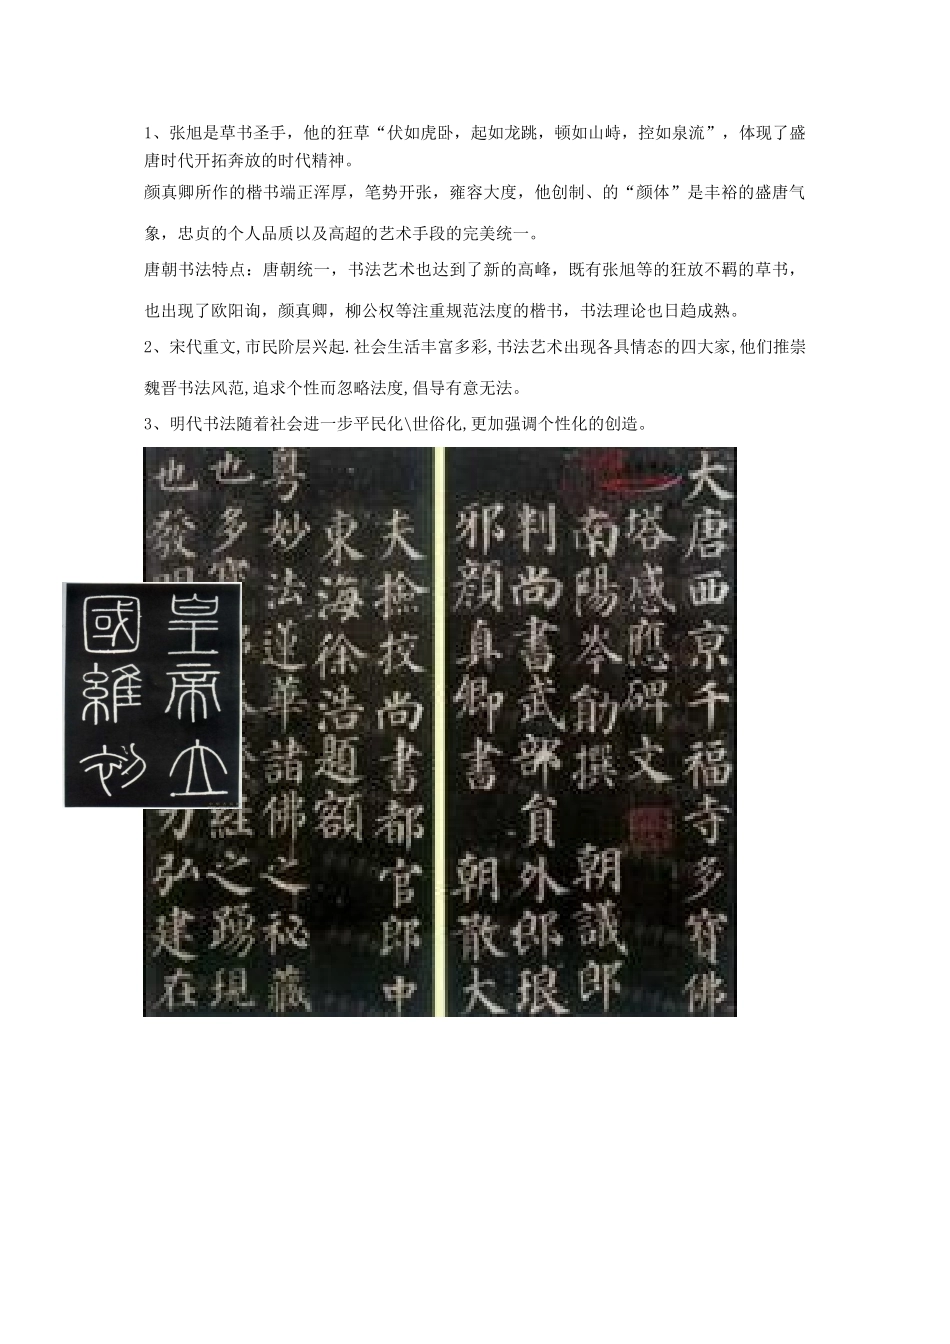 1、张旭是草书圣手，他的狂草“伏如虎卧，起如龙跳，顿如山峙，控如泉流”，体现了盛
唐时代开拓奔放的时代精神。
颜真卿所作的楷书端正浑厚，笔势开张，雍容大度，他创制、的“颜体”是丰裕的盛唐气
象，忠贞的个人品质以及高超的艺术手段的完美统一。
唐朝书法特点：唐朝统一，书法艺术也达到了新的高峰，既有张旭等的狂放不羁的草书，
也出现了欧阳询，颜真卿，柳公权等注重规范法度的楷书，书法理论也日趋成熟。
2、宋代重文,市民阶层兴起.社会生活丰富多彩,书法艺术出现各具情态的四大家,他们推崇
魏晋书法风范,追求个性而忽略法度,倡导有意无法。
3、明代书法随着社会进一步平民化\世俗化,更加强调个性化的创造。
大唐西京千福寺多寶佛
塔感應碑文
南陽岑勛撰 朝議郎
判尚書武部員外郎琅
邪顏真卿書 朝散大
夫撿挍尚書都官郎中
東海徐浩題額
粵妙法蓮華諸佛之秘藏
也多寶 經之踴現
也發 弘建在
皇帝立
國維初